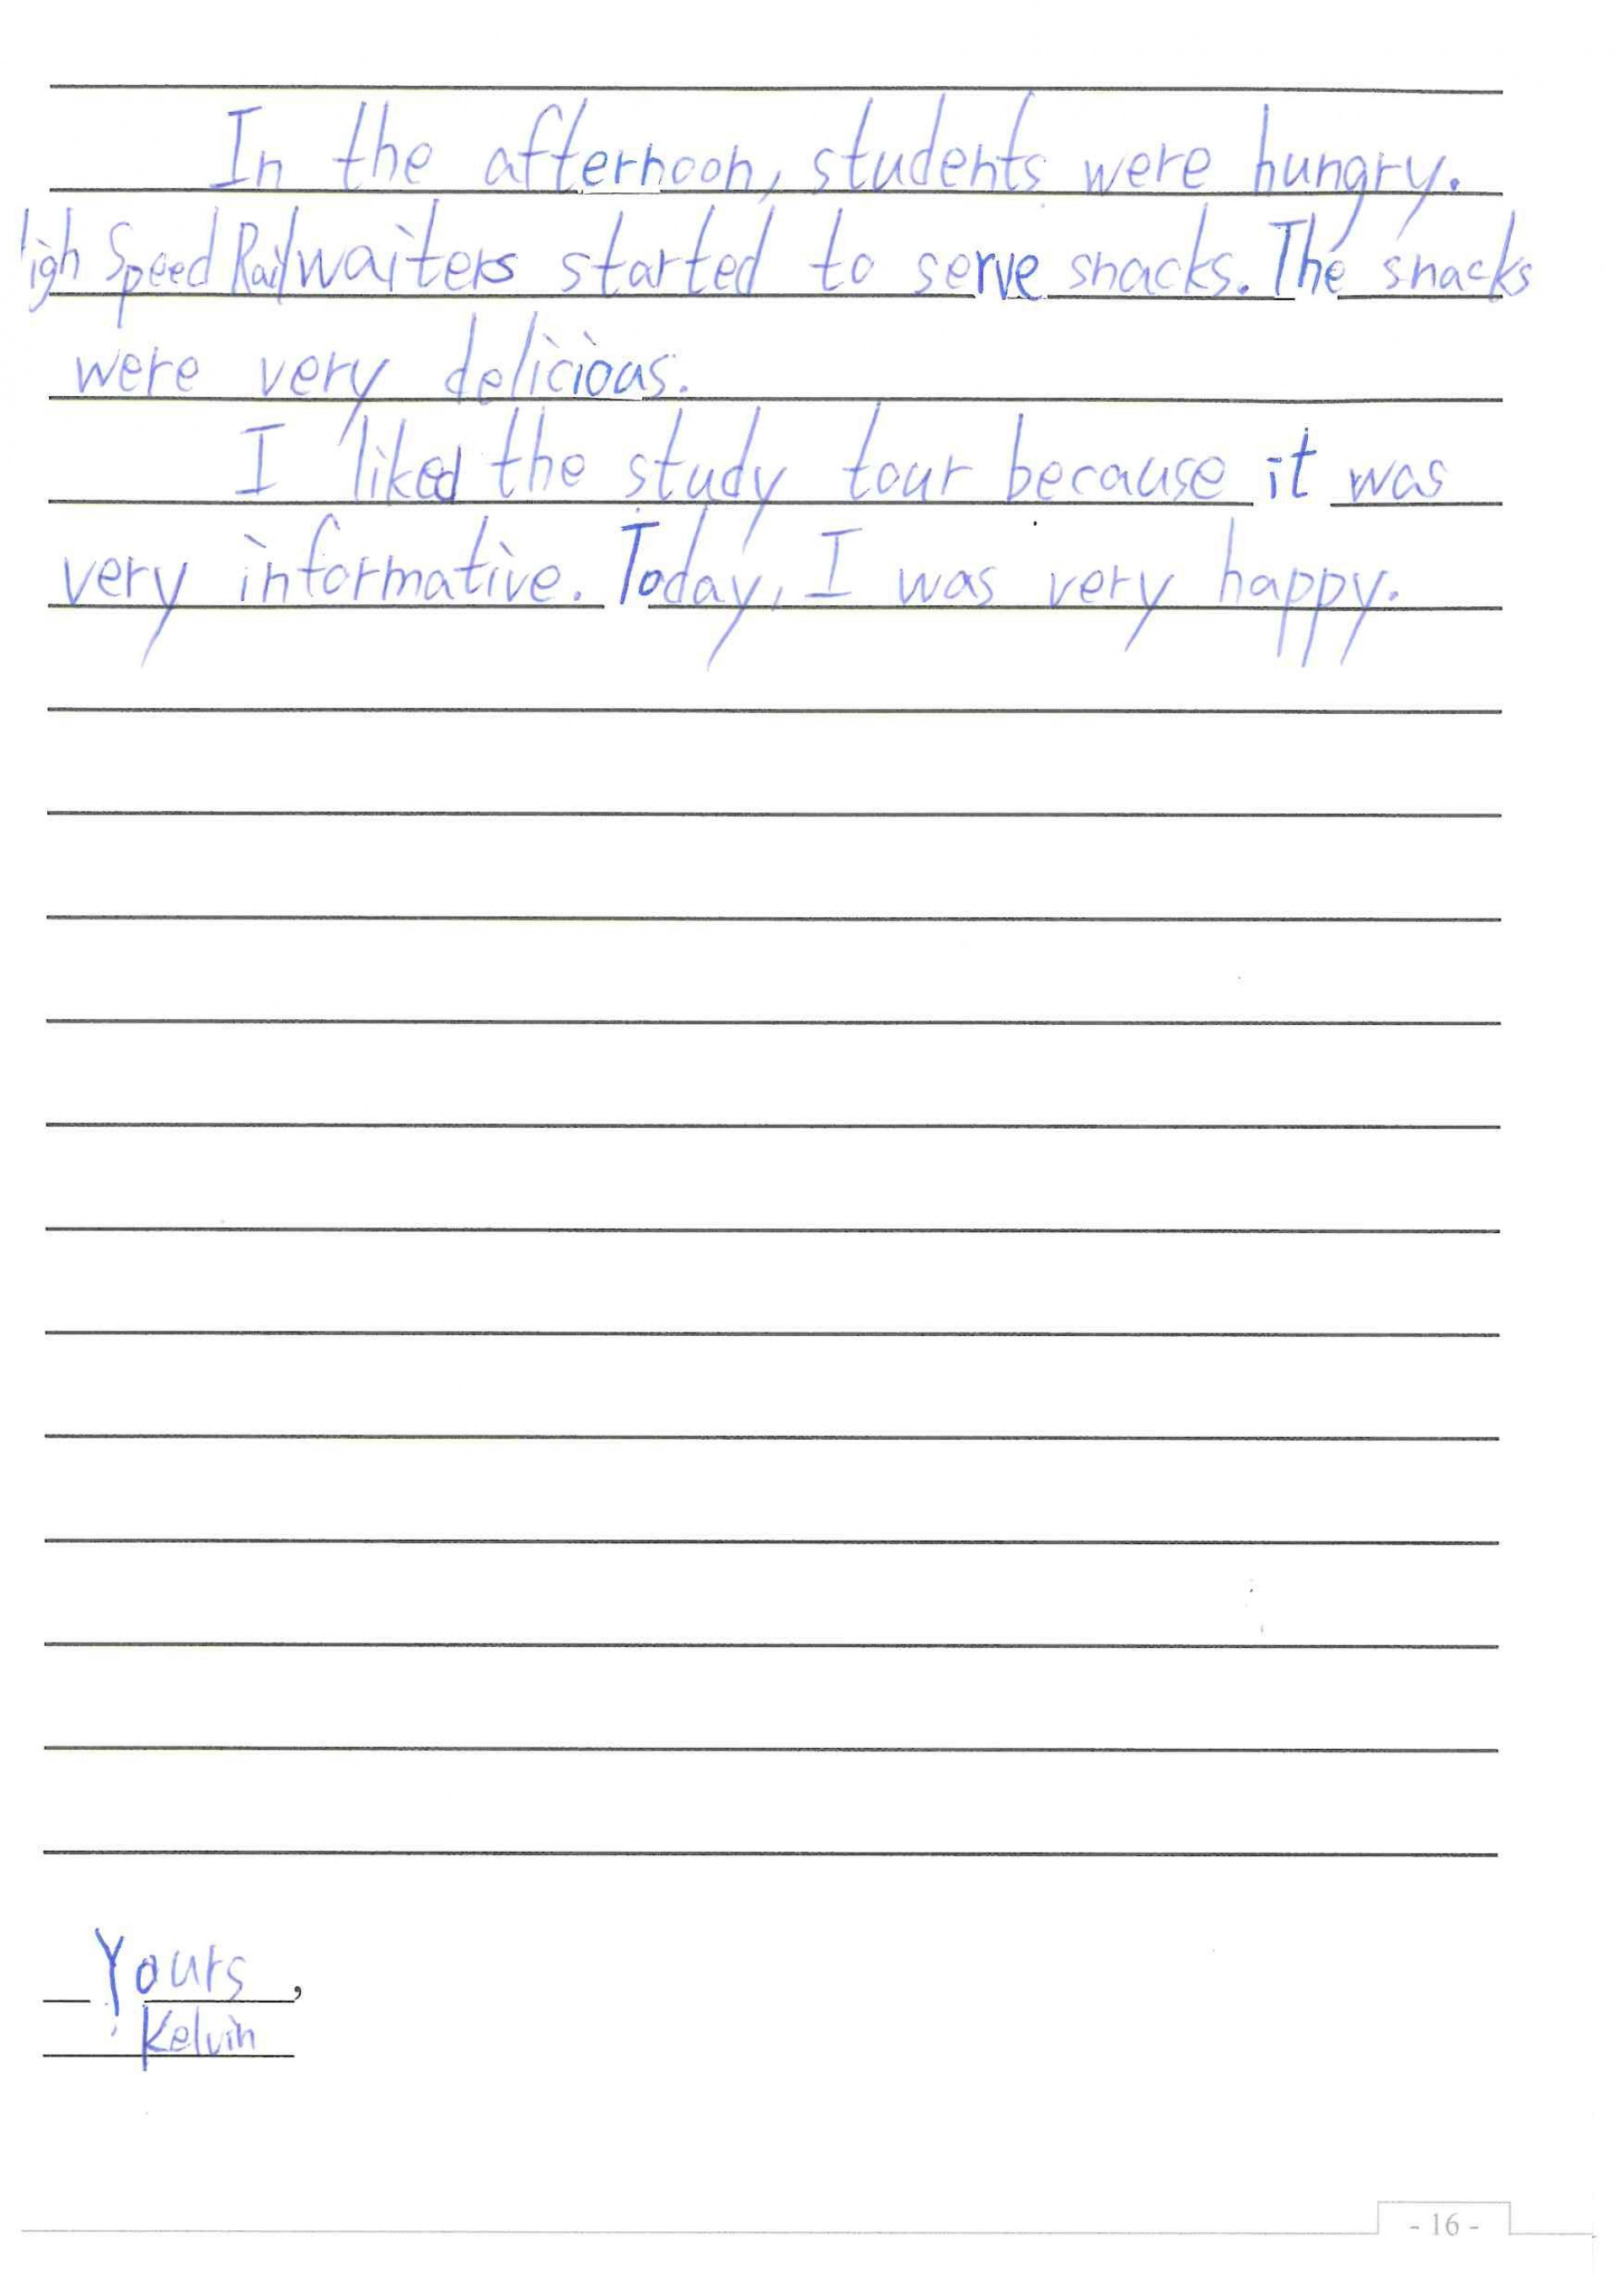 In the afternoon, students were hungry.
High Speed Rail waiters started to serve snacks. The snacks
were very delicious.
I liked the study tour because it was
very informative. Today, I was very happy.
Yours,
Kelvin
- 16 -